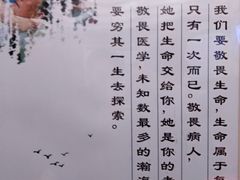 我们要敬畏生命,生命属于每
只有一次而已。敬畏病人,
她把生命交给你,她是你的
敬畏医学,未知数最多的瀚海
要穷其一生去探索。